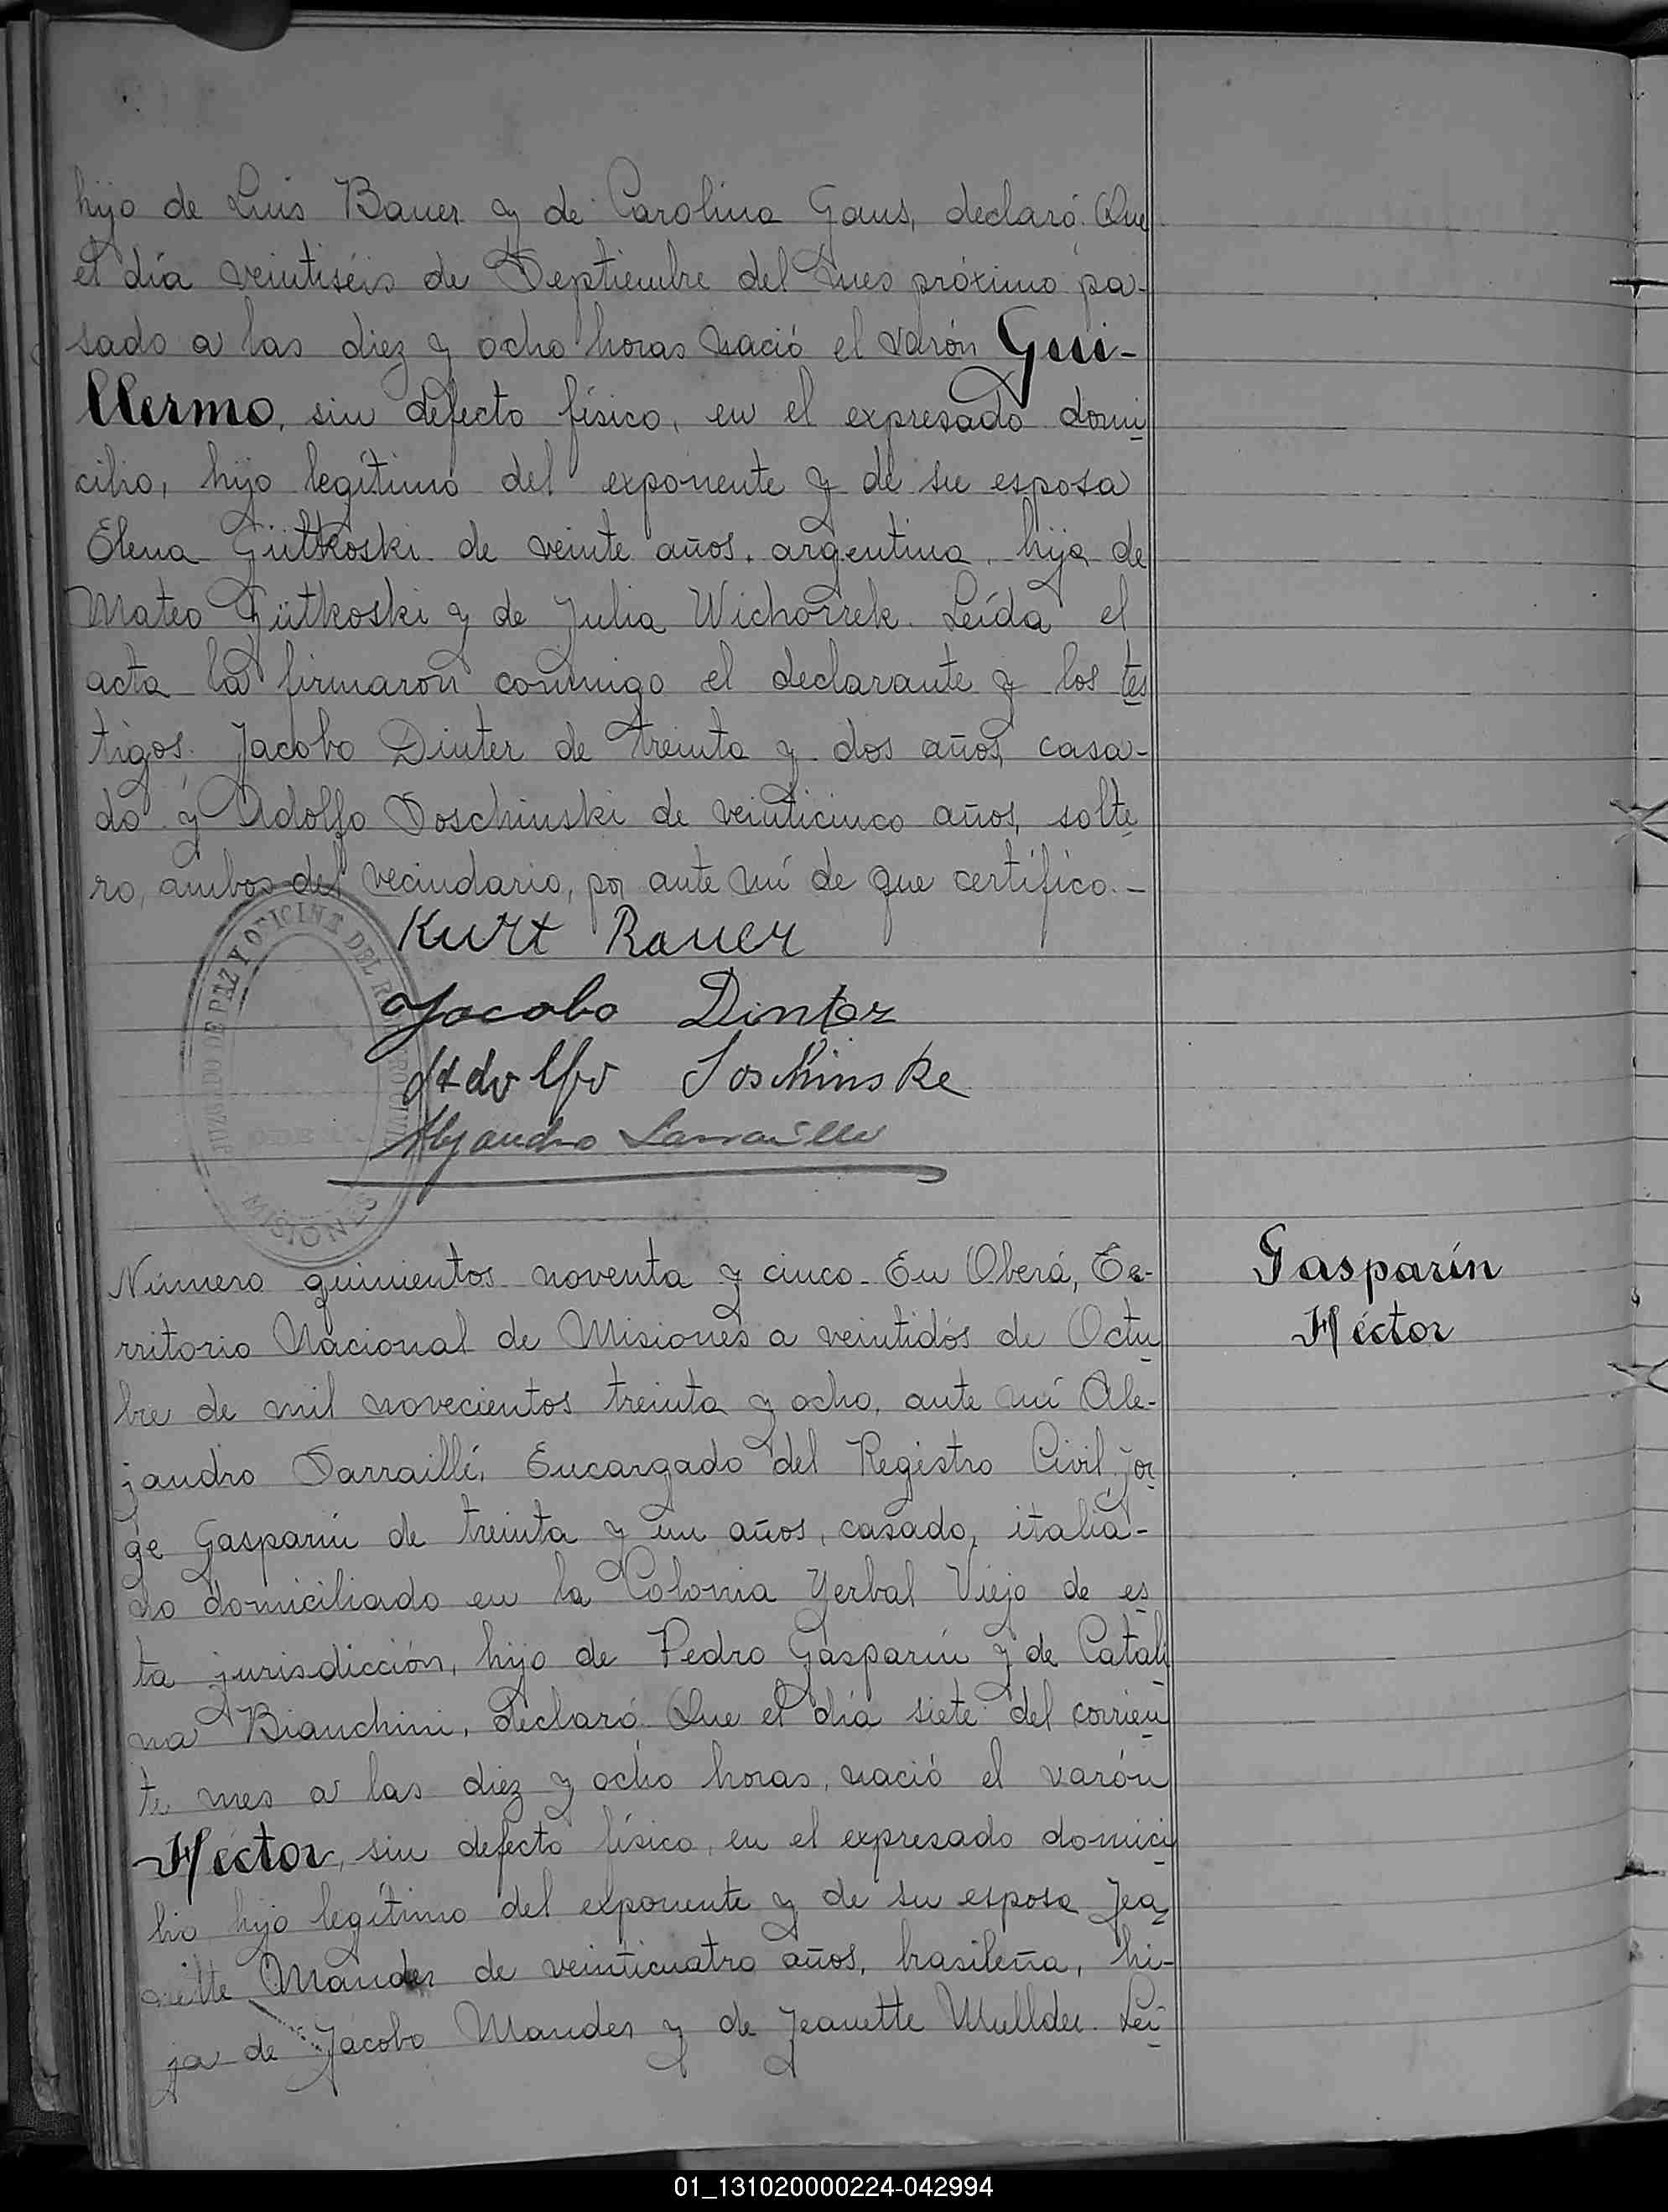 hijo de Luis Bauer y de Carolina Gaus, declaró: Que
el día veintiséis de Septiembre del mes próximo pa-
sado a las diez y ocho horas nació el varón Gui-
llermo, sin defecto físico, en el expresado domi
cilio, hijo legítimo del exponente y de su esposa
Elena Gütkoski de veinte años, argentina, hija de
Mateo Gütkoski y de Julia Wichorrek. Leída el
acta la firmaron conmigo el declarante y los tes
tigos: Jacobo Dinter de treinta y dos años, casa-
do y Adolfo Soschinski de veinticinco años, solte
ro, ambos del vecindario, por ante mí de que certifico.-
Kurt Bauer
Jacobo Dinter
Adolfo Soschinske
Alejandro Sarraillé
JUZGADO DE PAZ Y OFICINA DEL
MISIONES
Gasparín
Héctor
Número quinientos noventa y cinco. En Oberá, Te-
rritorio Nacional de Misiones a veintidós de Octu
bre de mil novecientos treinta y ocho, ante mí Ale-
jandro Sarraillé, Encargado del Registro Civil, Jor
ge Gasparín de treinta y un años, casado, italia-
no domiciliado en la Colonia Yerbal Viejo de es
ta jurisdicción, hijo de Pedro Gasparín y de Catali
na Bianchini, declaró: Que el día siete del corrien
te mes a las diez y ocho horas, nació el varón
Héctor, sin defecto físico, en el expresado domici
lio hijo legítimo del exponente y de su esposa Jea
nette Mander de veinticuatro años, brasileña, hi-
ja de Jacobo Mander y de Jeanette Mullder. Leí
01_131020000224-042994